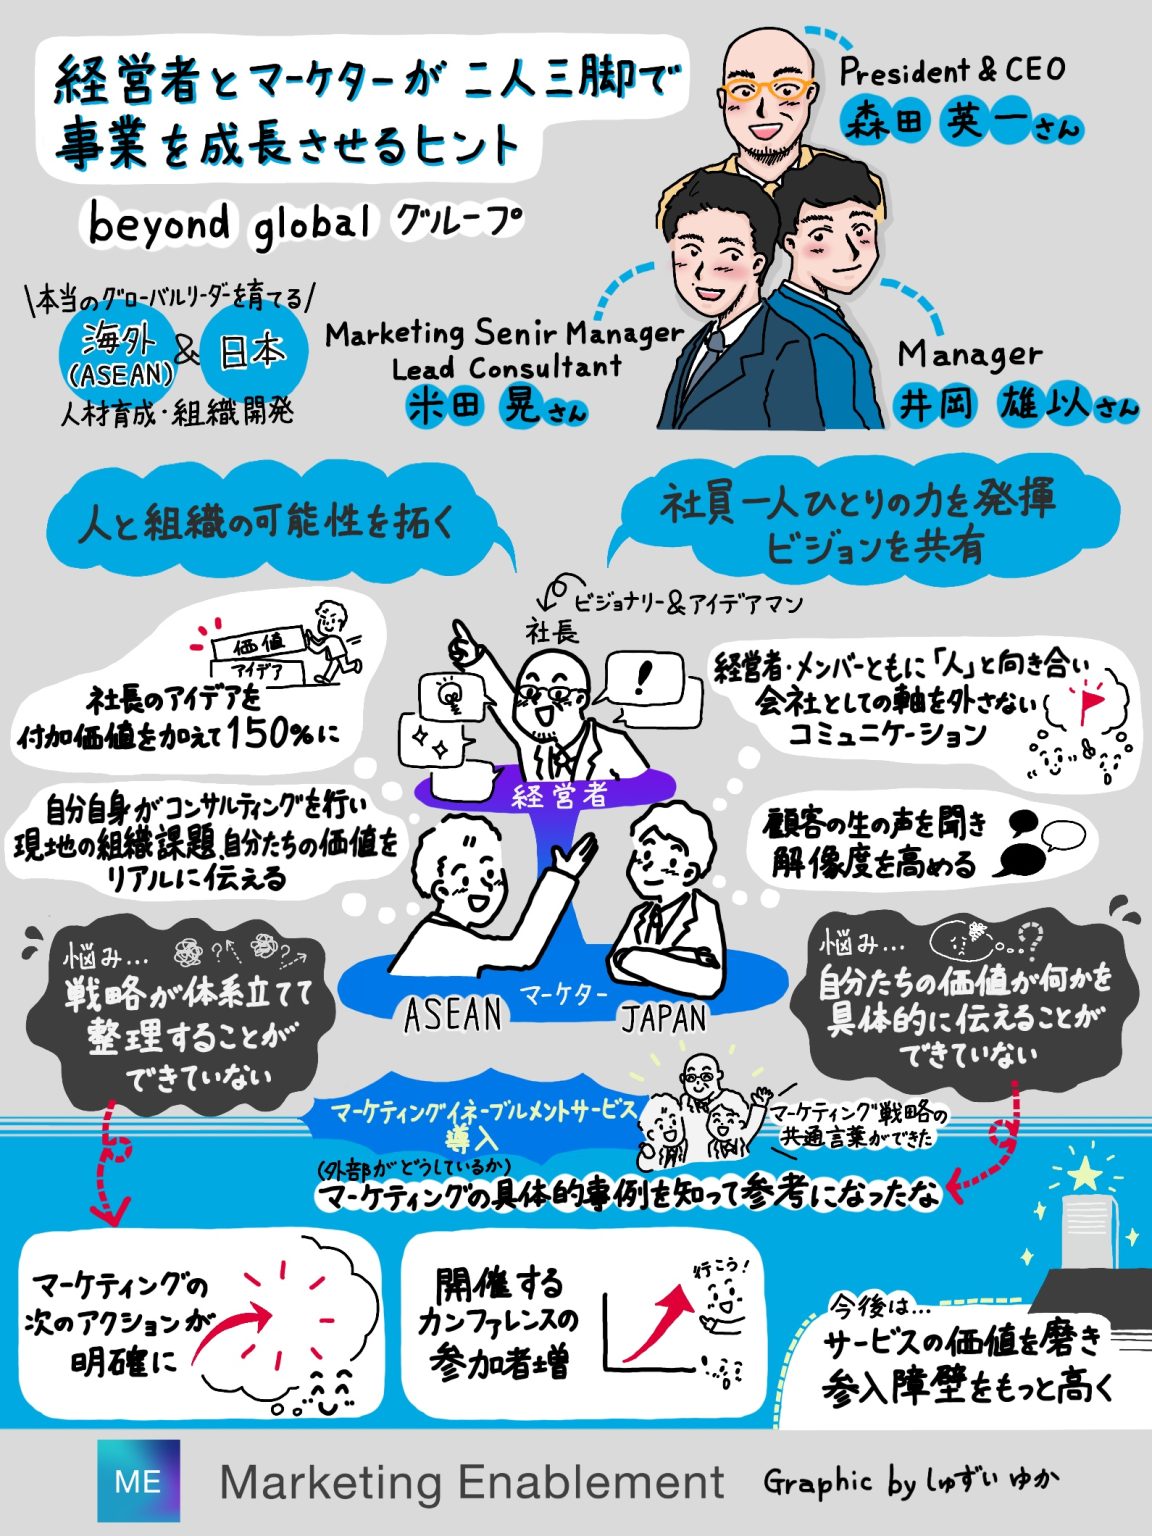 経営者とマーケターが二人三脚で
事業を成長させるヒント
beyond global グループ
President & CEO
森田 英一さん
\本当のグローバルリーダーを育てる/
海外
(ASEAN)
&
日本
人材育成・組織開発
Marketing Senir Manager
Lead Consultant
米田 晃さん
Manager
井岡 雄以さん
人と組織の可能性を拓く
社員一人ひとりの力を発揮
ビジョンを共有
ビジョナリー&アイデアマン
社長
価値
アイデア
社長のアイデアを
付加価値を加えて150%に
!
経営者・メンバーともに「人」と向き合い
会社としての軸を外さない
コミュニケーション
経営者
自分自身がコンサルティングを行い
現地の組織課題、自分たちの価値を
リアルに伝える
顧客の生の声を聞き
解像度を高める
悩み…
??
戦略が体系立てて
整理することが
できていない
ASEAN
マーケター
JAPAN
悩み…
?
自分たちの価値が何かを
具体的に伝えることが
できていない
マーケティングイネーブルメントサービス
導入
マーケティング戦略の
共通言葉ができた
(外部がどうしているか)
マーケティングの具体的事例を知って参考になったな
マーケティングの
次のアクションが
明確に
開催する
カンファレンスの
参加者増
行こう!
今後は…
サービスの価値を磨き
参入障壁をもっと高く
ME
Marketing Enablement
Graphic by しゅずい ゆか